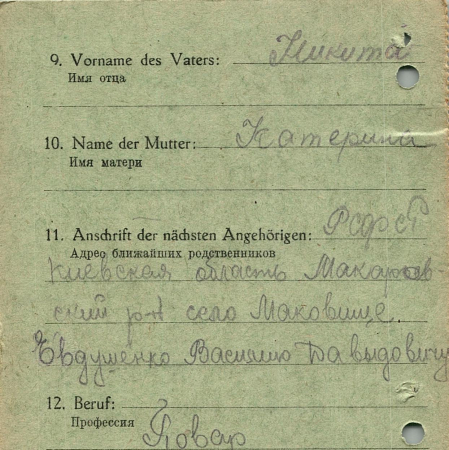 9. Vorname des Vaters: Никита
Имя отца
10. Name der Mutter: Катерина
Имя матери
11. Anschrift der nächsten Angehörigen: РСФСР
Адрес ближайших родственников
Киевская область Макаров-
ский р-н село Маковище
Евдушенко Василию Давыдовичу
12. Beruf:
Профессия Повар